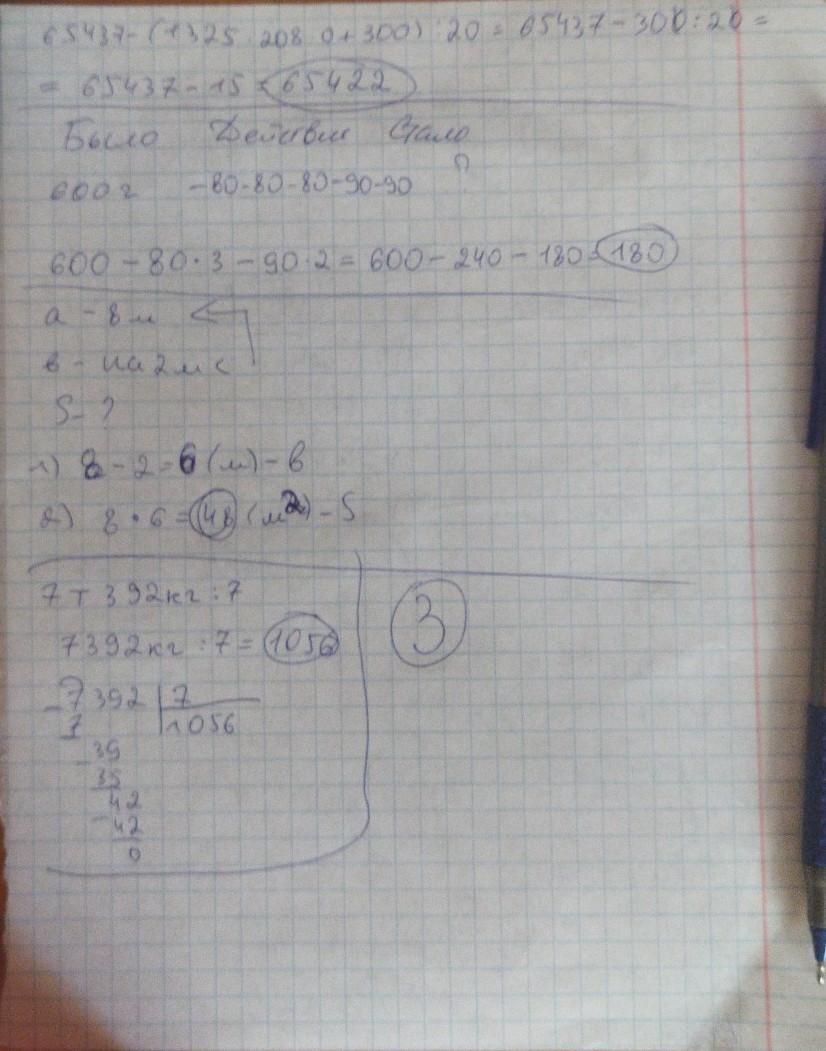 65437-(1325·208·0+300):20=65437-300:20=
=65437-15=65422
Было Действие Стало
600г -80-80-80-90-90 ?
600-80·3-90·2=600-240-180=180
a - 8м
в - на 2м <
S - ?
1) 8-2=6(м)-в
2) 8·6=48(м²)-S
7т 392кг:7
7392кг:7=1056
3
-7392 7
7 1056
-39
35
-42
42
0